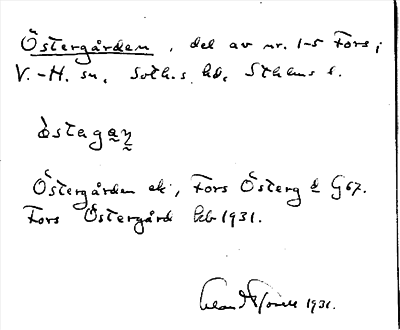 Östergården, del av nr. 1-5 Fors i
V.-H. sn, Soth.s hd, Sthlms l.
östagaṇ
Östergården ek, Fors Österg d G 67.
Fors Östergård kb 1931.
1931.